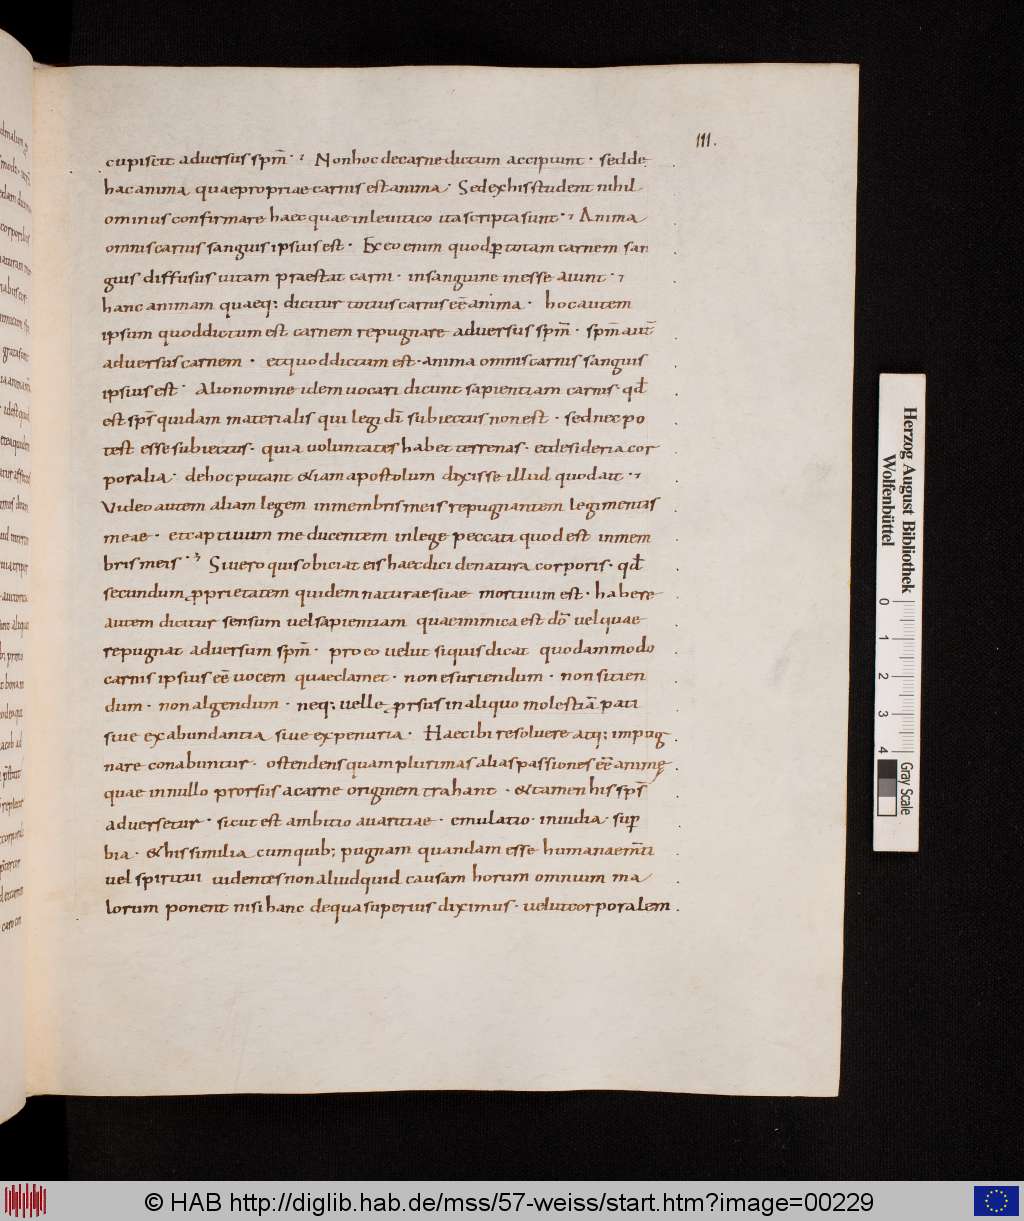 111.
cupiscit adversus spm̄ · Non hoc de carne dictum accipiunt · sed de
hac anima quae propriae carnis est anima · Sed ex his student nihil
ominus confirmare haec quae in levitico ita scripta sunt · Anima
omnis carnis sanguis ipsius est · Ex eo enim quod ꝑ totam carnem san
guis diffusus vitam praestat carni · in sanguine inesse aiunt ·
hanc animam quaeq; dicitur totius carnis eē anima · hoc autem
ipsum quod dictum est carnem repugnare adversus spm̄ · spm̄ aut̄
adversus carnem · et quod dictum est · anima omnis carnis sanguis
ipsius est · Alio nomine idem vocari dicunt sapientiam carnis · qd̄
est sps̄ quidam materialis qui legi dī subiectus non est · sed nec po
test esse subiectus · quia voluntates habet terrenas · et desideria cor
poralia · de hoc putant &iam apostolum dixisse illud quod ait ·
Video autem aliam legem in membris meis repugnantem legi mentis
meae · et captivum me ducentem in lege peccati quod est in mem
bris meis · Si vero quis obiciat eis haec dici de natura corporis · qd̄
secundum ꝓprietatem quidem naturae suae mortuum est · habere
autem dicitur sensum vel sapientiam quae inimica est dō vel quae
repugnat adversum spm̄ · pro eo velut si quis dicat quodammodo
carnis ipsius eē vocem quae clamet · non esuriendum · non sitien
dum · non algendum · neq; velle ꝓrsus in aliquo molestiā pati
sive ex abundantia sive ex penuria · Haec ibi resolvere atq; impug
nare conabuntur · ostendens quam plurimas alias passiones eē animę
quae in nullo prorsus a carne originem trahant · & tamen his sps̄
adversetur · sicut est ambitio avaritiae · emulatio · invidia · suꝑ
bia · & his similia cum quib; pugnam quandam esse humanae m̄ti
vel spiritui videntes non aliud quid causam horum omnium ma
lorum ponent nisi hanc de qua superius diximus · velut corporalem
Herzog August Bibliothek
Wolfenbüttel
0 1 2 3 4
Gray Scale
© HAB http://diglib.hab.de/mss/57-weiss/start.htm?image=00229